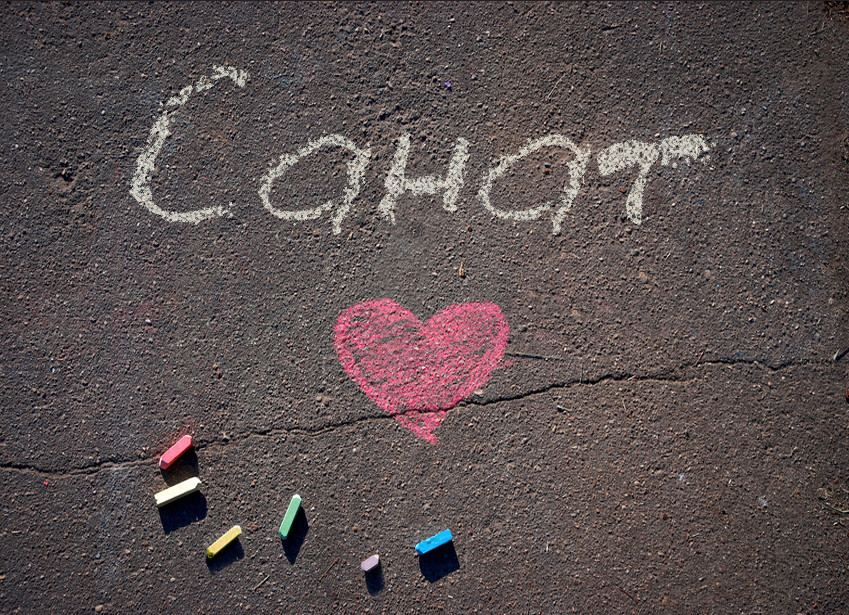 Санат